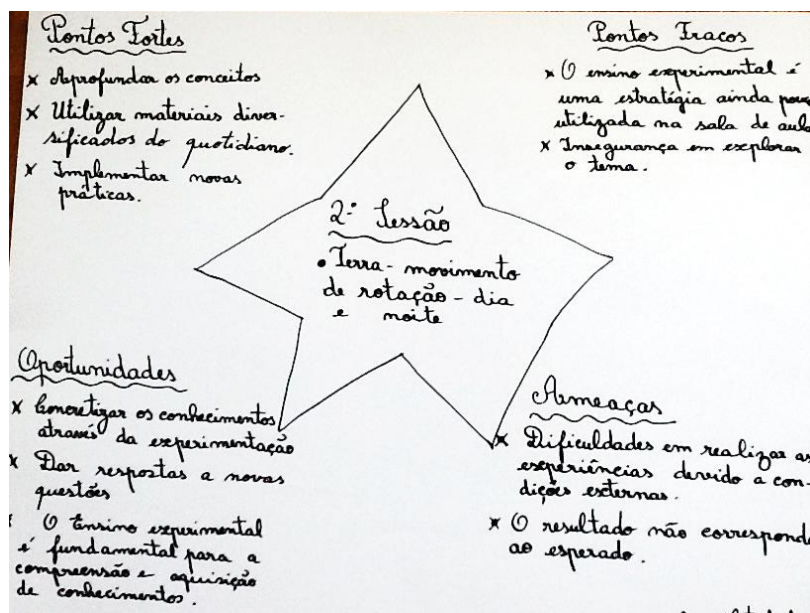 Pontos Fortes
x Aprofundar os conceitos
x Utilizar materiais diver-
sificados do quotidiano.
x Implementar novas
práticas.
Pontos Fracos
x O ensino experimental é
uma estratégia ainda
utilizada na sala de aula
x Insegurança em explorar
o tema.
2ª Sessão
• Terra - movimento
de rotação - dia
e noite
Oportunidades
x Concretizar os conhecimentos
através da experimentação
x Dar respostas a novas
questões
O Ensino experimental
é fundamental para a
compreensão e aquisição
de conhecimentos.
Ameaças
x Dificuldades em realizar as
experiências devido a con-
dições externas.
x O resultado não corresponde
ao esperado.